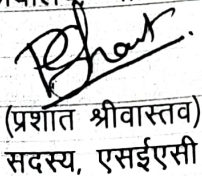 (प्रशांत श्रीवास्तव)
सदस्य, एसईएसी